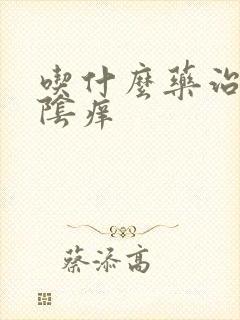 喫什麼藥治
陰痒
蔡添高